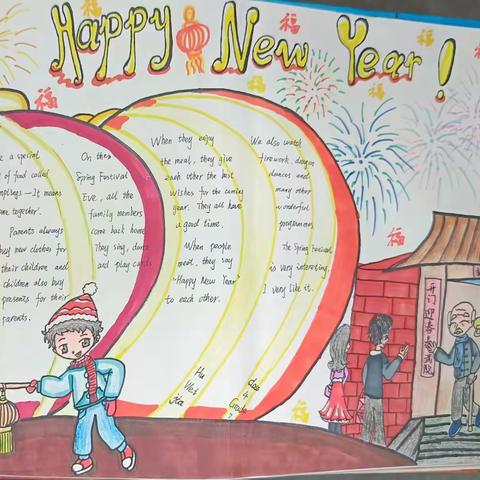 Happy New Year!
a special
of food called
mplings — It means
together.
Parents always
new clothes for
their children and
children also buy
presents for their
parents.
On the
Spring Festival
Eve, all the
family members
come back home
They sing, dance
and play cards
When they enjoy
the meal, they give
each other the best
wishes for the coming
year. They all have
a good time.
When people
meet, they say
"Happy New Year"
to each other.
We also watch
firework, dragon
dances and
many other
wonderful
programmes
The Spring Festival
is very interesting,
I very like it.
Hu
class
4
Grade
7
福
福
福
福
福
福
开门迎春